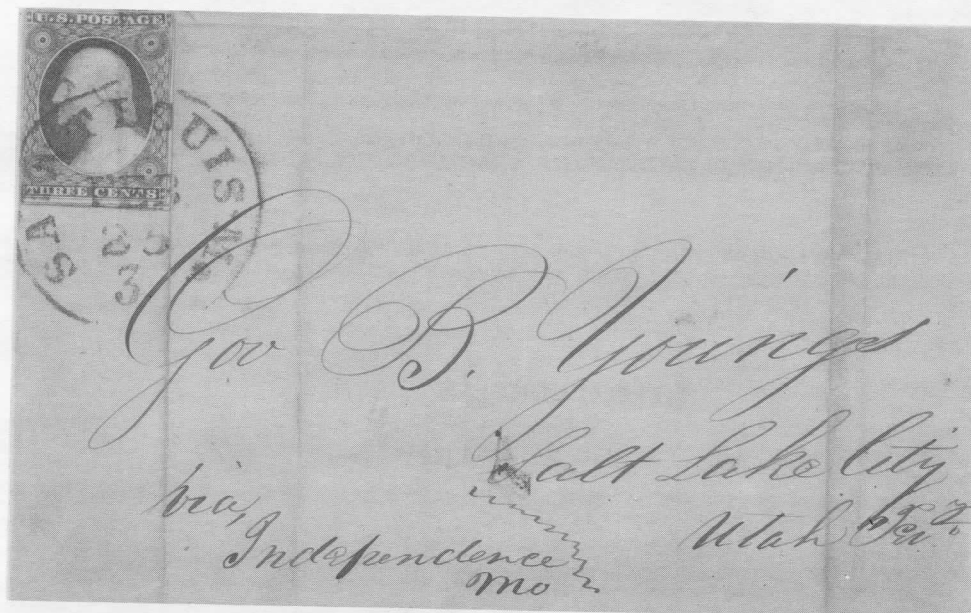 U.S. POSTAGE
THREE CENTS
SA UIS. Mo.
3
Gov B. Youngs
Salt Lake City
Utah Ter.
via,
Independence
Mo